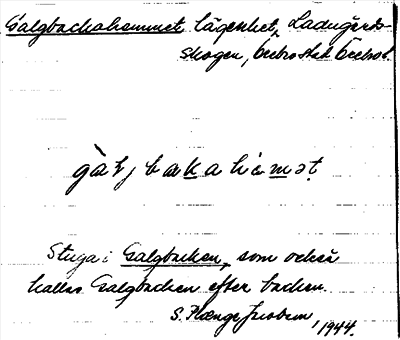 Galgbackahemmet lägenhet, Ladugårds-
skogen, Örebro stad Örebro l.
gàlj baka hèmət
Stuga i Galgbacken, som också
kallas Galgbacken efter backen.
S. 1944.